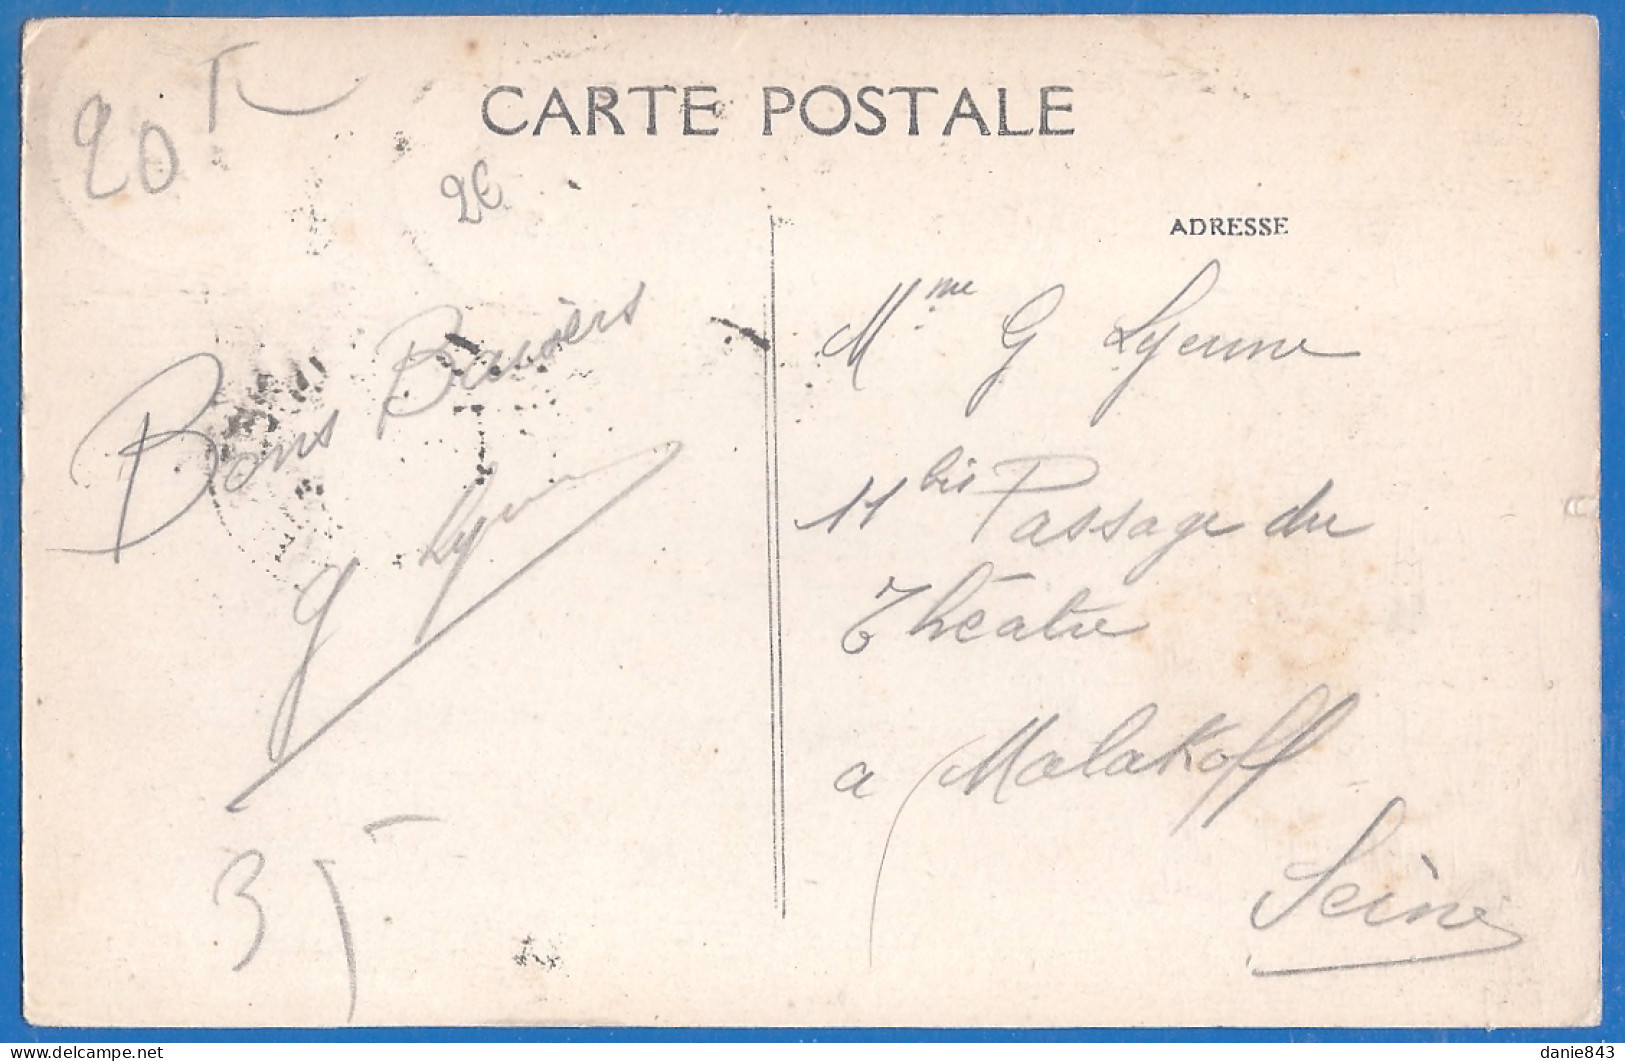 CARTE POSTALE
20
20
ADRESSE
Bons Baisers
G Lyenne
35
Mme G Lyenne
11 bis Passage du
Théatre
a Malakoff
Seine
delcampe.net
danie843